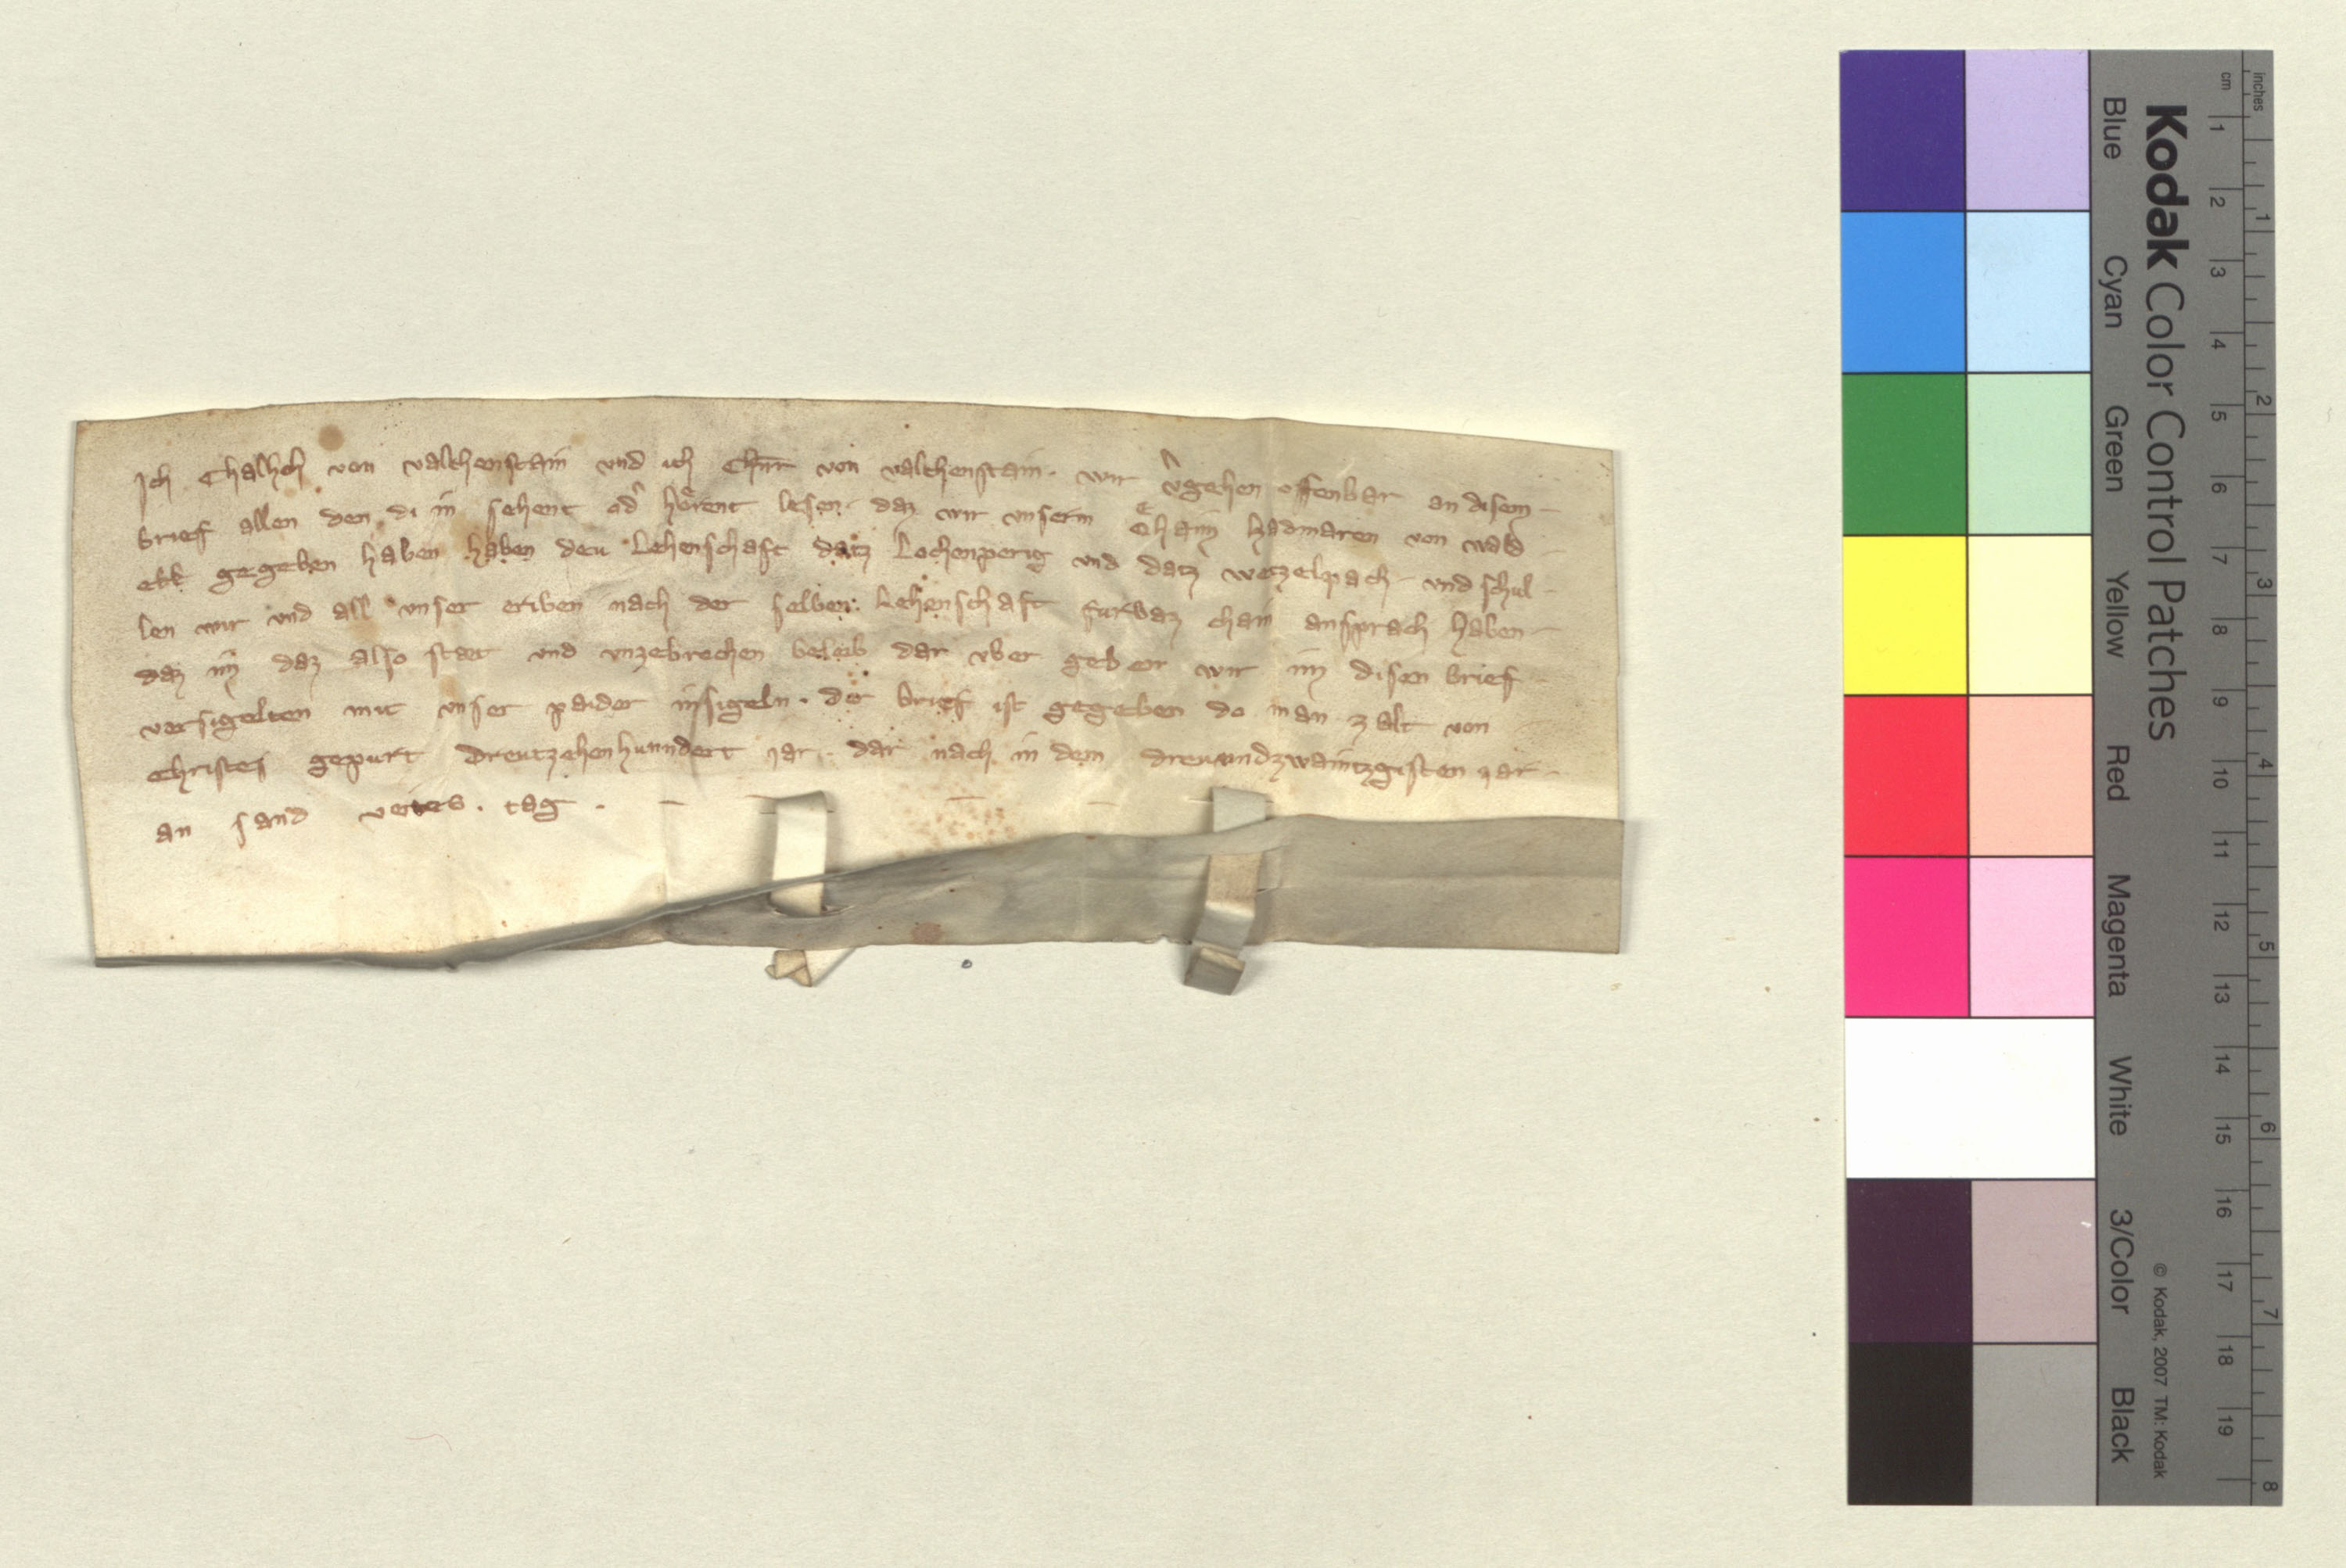 Ich Chalhoh von valchenstain vnd ich Chunr von valchenstain · wir v̾gehen offenbar an disem –
brief allen den di in sehent od̾ hoͤrent lesen · daz wir vnserm Oͤhaim Hadmaren von wald –
ekk gegeben haben haben deu Lehenschaft datz Lochenperig vnd datz wetzelpach – vnd schul –
len wir vnd all vnser eriben nach der selben Lehenschaft furbaz chain ansprach haben –
daz im daz also staet vnd vnzebrochen beleib dar vber geb wir im disen brief –
versigelten mit vnser paider insigeln · der brief ist gegeben do man zalt von
Christes gepurt Dreutzehenhunndert jar · dar nach in dem dreuundzwaintzgisten jar –
an sand veites · tag ·
Kodak Color Control Patches
Blue Cyan Green Yellow Red Magenta White 3/Color Black
© Kodak, 2007 TM: Kodak
cm 1 2 3 4 5 6 7 8 9 10 11 12 13 14 15 16 17 18 19
inches 1 2 3 4 5 6 7 8